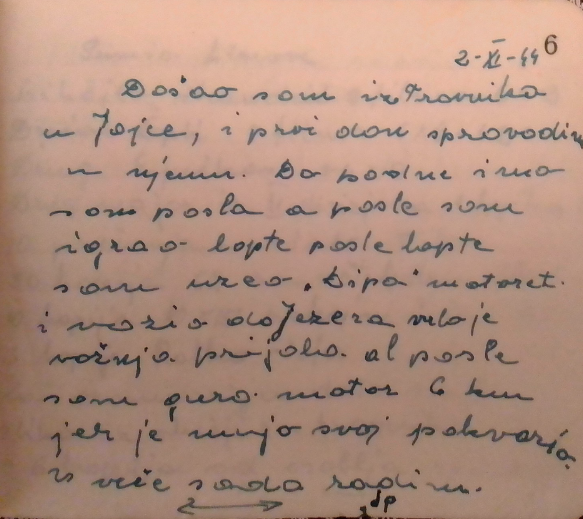 6
2-XI-44
Došao sam iz Travnika
u Jajce, i prvi dan sprovodim
u njemu. Do podne imao
sam posla a posle sam
igrao lopte posle lopte
sam uzeo „Dipa" motoret.
i vozio do Jezera vrlo je
vožnja prijala. al posle
sam guro motor 6 km
jer je mujo svoj pokvario.
veče sada radim.